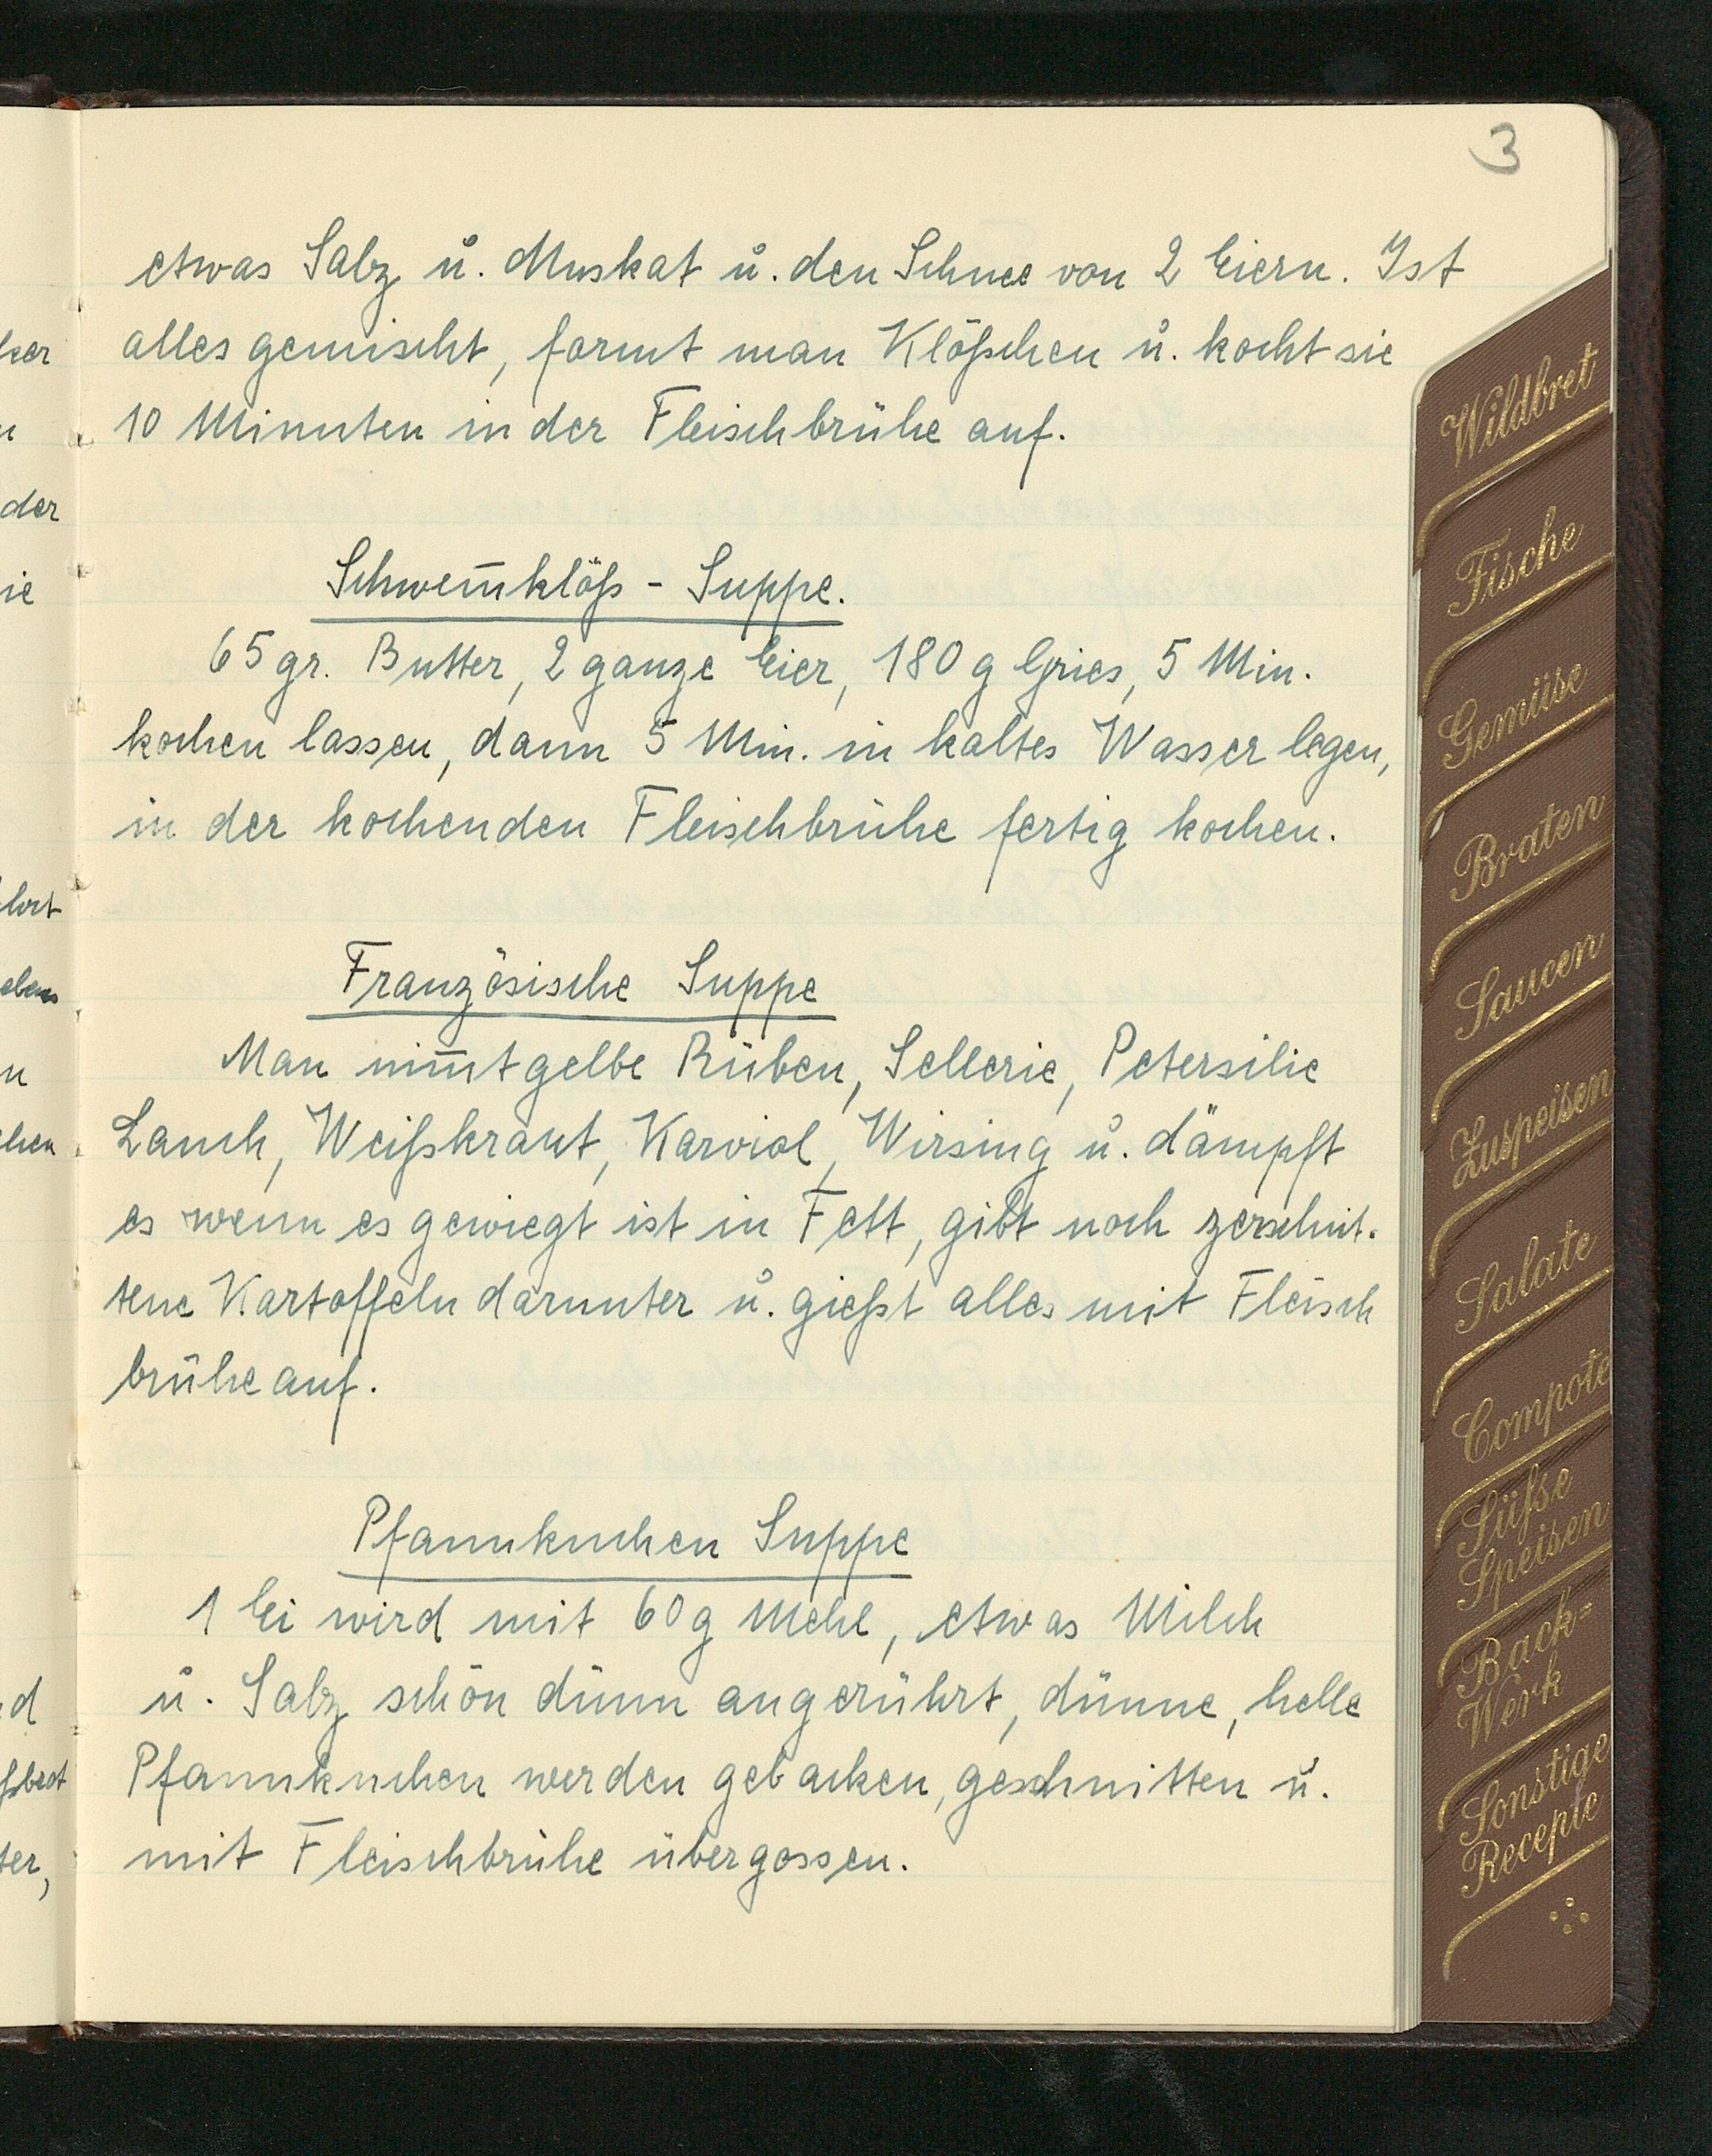 3
etwas Salz u. Muskat u. den Schnee von 2 Eiern. Ist
alles gemischt, formt man Klößchen u. kocht sie
10 Minuten in der Fleischbrühe auf.
Schwem̅klöß - Suppe.
65 gr. Butter, 2 ganze Eier, 180 g Gries, 5 Min.
kochen lassen, dann 5 Min. in kaltes Wasser legen,
in der kochenden Fleischbrühe fertig kochen.
Französische Suppe
Man nim̅t gelbe Rüben, Sellerie, Petersilie
Lauch, Weißkraut, Karviol, Wirsing u. dämpft
es wenn es gewiegt ist in Fett, gibt noch zerschnit-
tene Kartoffeln darunter u. gießt alles mit Fleisch
brühe auf.
Pfannkuchen Suppe
1 Ei wird mit 60 g Mehl, etwas Milch
u. Salz schön dünn angerührt, dünne, helle
Pfannkuchen werden gebacken, geschnitten u.
mit Fleischbrühe übergossen.
Wildbret
Fische
Gemüse
Braten
Saucen
Zuspeisen
Salate
Compote
Süßse
Speisen
Back=
Werk
Sonstige
Recepte
der
ie
n
d
ter,